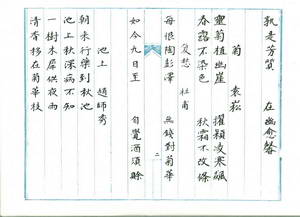 孰是芳質　在幽愈馨
菊　袁崧
靈菊植幽崖　擢穎凌寒飆
春露不染色　秋霜不改條
复愁　杜甫
每恨陶彭澤　無錢對菊華
如今九日至　自覺酒須賒
二
池上　趙師秀
朝來行藥到秋池
池上秋深病不知
一樹木犀供夜雨
清香移在菊華枝